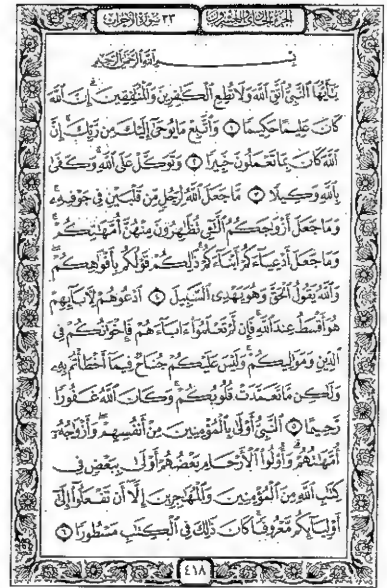 الجزء الحادي والعشرون ٣٣ سورة الأحزاب
بسم الله الرحمن الرحيم
يَٰٓأَيُّهَا ٱلنَّبِيُّ ٱتَّقِ ٱللَّهَ وَلَا تُطِعِ ٱلْكَٰفِرِينَ وَٱلْمُنَٰفِقِينَ إِنَّ ٱللَّهَ
كَانَ عَلِيمًا حَكِيمًا ١ وَٱتَّبِعْ مَا يُوحَىٰٓ إِلَيْكَ مِن رَّبِّكَ إِنَّ
ٱللَّهَ كَانَ بِمَا تَعْمَلُونَ خَبِيرًا ٢ وَتَوَكَّلْ عَلَى ٱللَّهِ وَكَفَىٰ
بِٱللَّهِ وَكِيلًا ٣ مَّا جَعَلَ ٱللَّهُ لِرَجُلٍ مِّن قَلْبَيْنِ فِي جَوْفِهِۦ
وَمَا جَعَلَ أَزْوَٰجَكُمُ ٱلَّٰٓـِٔي تُظَٰهِرُونَ مِنْهُنَّ أُمَّهَٰتِكُمْ
وَمَا جَعَلَ أَدْعِيَآءَكُمْ أَبْنَآءَكُمْ ذَٰلِكُمْ قَوْلُكُم بِأَفْوَٰهِكُمْ
وَٱللَّهُ يَقُولُ ٱلْحَقَّ وَهُوَ يَهْدِي ٱلسَّبِيلَ ٤ ٱدْعُوهُمْ لِأٓبَآئِهِمْ
هُوَ أَقْسَطُ عِندَ ٱللَّهِ فَإِن لَّمْ تَعْلَمُوٓا۟ ءَابَآءَهُمْ فَإِخْوَٰنُكُمْ فِي
ٱلدِّينِ وَمَوَٰلِيكُمْ وَلَيْسَ عَلَيْكُمْ جُنَاحٌ فِيمَآ أَخْطَأْتُم بِهِۦ
وَلَٰكِن مَّا تَعَمَّدَتْ قُلُوبُكُمْ وَكَانَ ٱللَّهُ غَفُورًا
رَّحِيمًا ٥ ٱلنَّبِيُّ أَوْلَىٰ بِٱلْمُؤْمِنِينَ مِنْ أَنفُسِهِمْ وَأَزْوَٰجُهُۥٓ
أُمَّهَٰتُهُمْ وَأُو۟لُوا۟ ٱلْأَرْحَامِ بَعْضُهُمْ أَوْلَىٰ بِبَعْضٍ فِي
كِتَٰبِ ٱللَّهِ مِنَ ٱلْمُؤْمِنِينَ وَٱلْمُهَٰجِرِينَ إِلَّآ أَن تَفْعَلُوٓا۟ إِلَىٰٓ
أَوْلِيَآئِكُم مَّعْرُوفًا كَانَ ذَٰلِكَ فِي ٱلْكِتَٰبِ مَسْطُورًا ٦
٤١٨